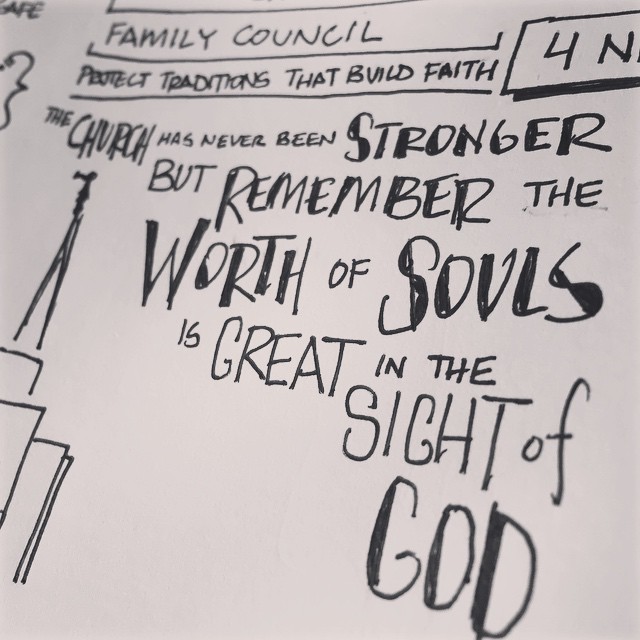 FAMILY COUNCIL
PROTECT TRADITIONS THAT BUILD FAITH
4 N
THE CHURCH HAS NEVER BEEN STRONGER
BUT REMEMBER THE
WORTH OF SOULS
IS GREAT IN THE
SIGHT of
GOD